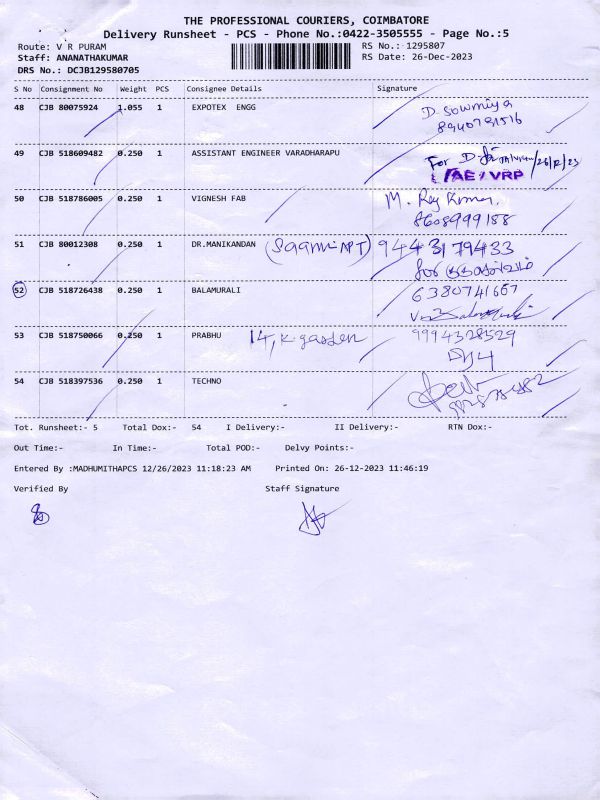 THE PROFESSIONAL COURIERS, COIMBATORE
Delivery Runsheet - PCS - Phone No.:0422-3505555 - Page No.:5
Route: V R PURAM RS No.: 1295807
Staff: ANANATHAKUMAR RS Date: 26-Dec-2023
DRS No.: DCJB129580705
S No Consignment No Weight PCS Consignee Details Signature
48 CJB 80075924 1.055 1 EXPOTEX ENGG D. Sowmiya
8940791516
49 CJB 518609482 0.250 1 ASSISTANT ENGINEER VARADHARAPU For D. 26/12/23
AE / VRP
50 CJB 518786005 0.250 1 VIGNESH FAB M. Raj Kumar.
8608999188
51 CJB 80012308 0.250 1 DR.MANIKANDAN 9443179433
for
52 CJB 518726438 0.250 1 BALAMURALI 6380741667
53 CJB 518750066 0.250 1 PRABHU 14, K garden 9994328529
54 CJB 518397536 0.250 1 TECHNO
Tot. Runsheet:- 5 Total Dox:- 54 I Delivery:- II Delivery:- RTN Dox:-
Out Time:- In Time:- Total POD:- Delvy Points:-
Entered By :MADHUMITHAPCS 12/26/2023 11:18:23 AM Printed On: 26-12-2023 11:46:19
Verified By Staff Signature